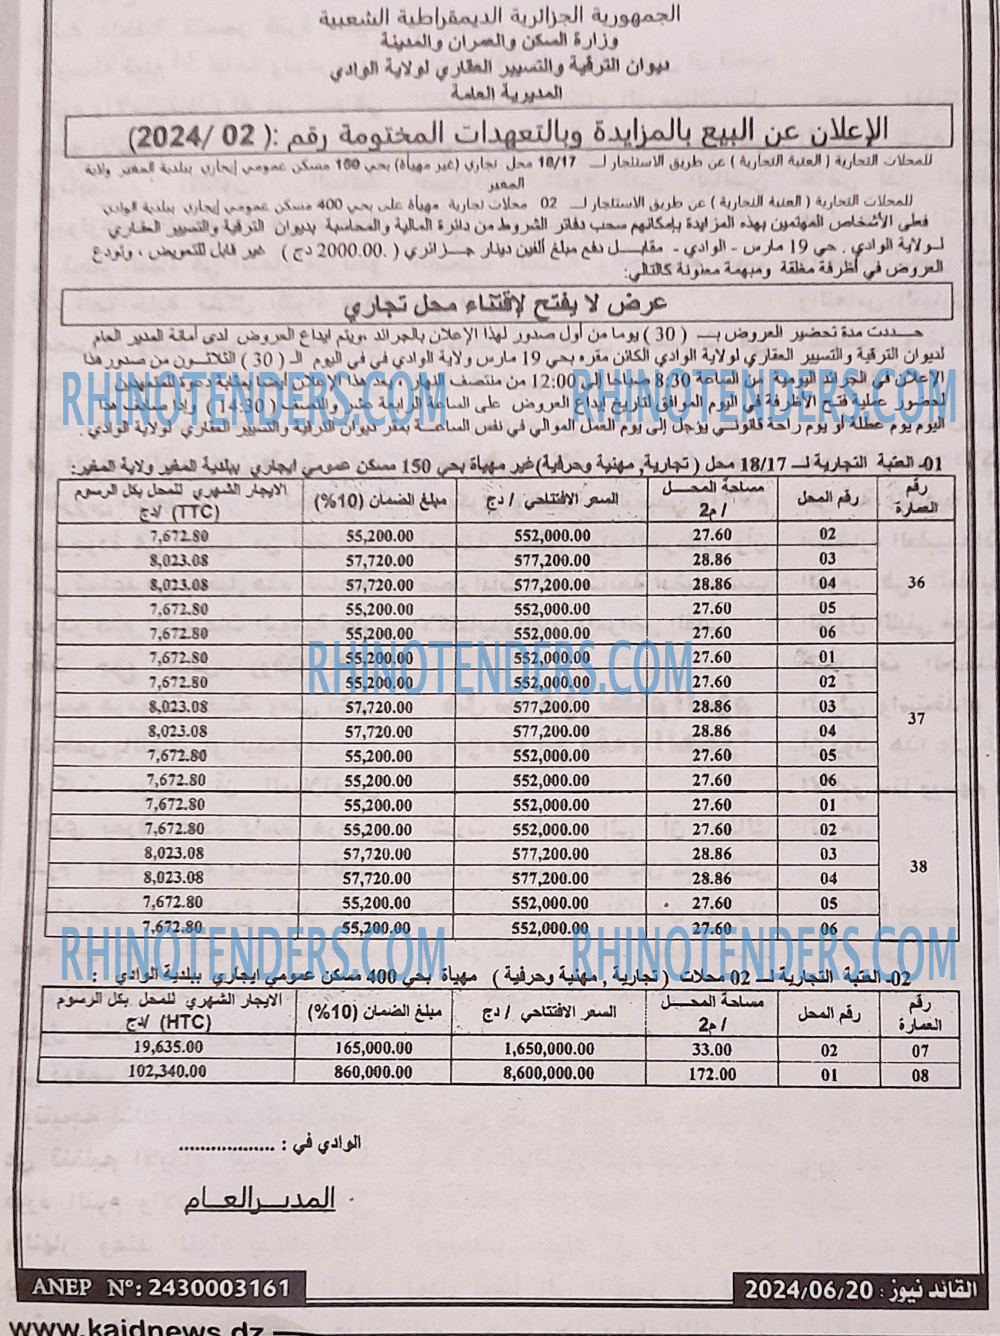 الجمهورية الجزائرية الديمقراطية الشعبية
وزارة السكن والعمران والمدينة
ديوان الترقية والتسيير العقاري لولاية الوادي
المديرية العامة
الإعلان عن البيع بالمزايدة وبالتعهدات المختومة رقم :( 02 /2024)
للمحلات التجارية ( العتبة التجارية ) عن طريق الاستئجار لـــ 18/17 محل تجاري (غير مهيأة) بحي 150 مسكن عمومي إيجاري ببلدية المغير ولاية
المغير
للمحلات التجارية ( العتبة التجارية ) عن طريق الاستئجار لـــ 02 محلات تجارية مهيأة على بحي 400 مسكن عمومي إيجاري ببلدية الوادي
فعلى الأشخاص المهتمين بهذه المزايدة بإمكانهم سحب دفاتر الشروط من دائرة المالية والمحاسبة بديوان الترقية والتسيير العقاري
لـولاية الوادي، حي 19 مارس - الوادي - مقـابـل دفع مبلغ ألفين دينار جـزائـري ( .2000.00 دج ) غير قابل للتعويض ، وتودع
العروض في أظرفة مغلقة ومبهمة معنونة كالتالي:
عرض لا يفتح لإقتناء محل تجاري
حـــددت مدة تحضير العروض بـــ ( 30 ) يوما من أول صدور لهذا الإعلان بالجرائد ،ويتم ايداع العروض لدى أمانة المدير العام
لديوان الترقية والتسيير العقاري لولاية الوادي الكائن مقره بحي 19 مارس ولاية الوادي في في اليوم الـ ( 30 ) الثلاثون من صدور هذا
الإعلان في الجرائد اليومية من الساعة 8:30 صباحا إلى 12:00 من منتصف النهار ، يعد هذا الإعلان أيضا بمثابة دعوة للمتعهدين
لحضور عملية فتح الأظرفة في اليوم الموافق لتاريخ إيداع العروض على الساعة الرابعة عشر والنصف ( 14:30 ) وإذا صادف هذا
اليوم يوم عطلة أو يوم راحة قانوني يؤجل إلى يوم العمل الموالي في نفس الساعــة بمقر ديوان الترقية والتسيير العقاري لولاية الوادي .
RHINOTENDERS.COM RHINOTENDERS.COM
01- العتبة التجارية لـــ 18/17 محل ( تجارية, مهنية وحرفية)غير مهيأة بحي 150 مسكن عمومي ايجاري ببلدية المغير ولاية المغير:
رقم العمارة | رقم المحل | مساحة المحـــل / م2 | السعر الافتتاحي / دج | مبلغ الضمان (10%) | الايجار الشهري للمحل بكل الرسوم (TTC) /دج
36 | 02 | 27.60 | 552,000.00 | 55,200.00 | 7,672.80
03 | 28.86 | 577,200.00 | 57,720.00 | 8,023.08
04 | 28.86 | 577,200.00 | 57,720.00 | 8,023.08
05 | 27.60 | 552,000.00 | 55,200.00 | 7,672.80
06 | 27.60 | 552,000.00 | 55,200.00 | 7,672.80
37 | 01 | 27.60 | 552,000.00 | 55,200.00 | 7,672.80
02 | 27.60 | 552,000.00 | 55,200.00 | 7,672.80
03 | 28.86 | 577,200.00 | 57,720.00 | 8,023.08
04 | 28.86 | 577,200.00 | 57,720.00 | 8,023.08
05 | 27.60 | 552,000.00 | 55,200.00 | 7,672.80
06 | 27.60 | 552,000.00 | 55,200.00 | 7,672.80
38 | 01 | 27.60 | 552,000.00 | 55,200.00 | 7,672.80
02 | 27.60 | 552,000.00 | 55,200.00 | 7,672.80
03 | 28.86 | 577,200.00 | 57,720.00 | 8,023.08
04 | 28.86 | 577,200.00 | 57,720.00 | 8,023.08
05 | 27.60 | 552,000.00 | 55,200.00 | 7,672.80
06 | 27.60 | 552,000.00 | 55,200.00 | 7,672.80
RHINOTENDERS.COM
RHINOTENDERS.COM RHINOTENDERS.COM
02- العتبة التجارية لـــ 02 محلات ( تجارية , مهنية وحرفية ) مهيأة بحي 400 مسكن عمومي ايجاري ببلدية الوادي :
رقم العمارة | رقم المحل | مساحة المحـــل / م2 | السعر الافتتاحي / دج | مبلغ الضمان (10%) | الايجار الشهري للمحل بكل الرسوم (HTC) /دج
07 | 02 | 33.00 | 1,650,000.00 | 165,000.00 | 19,635.00
08 | 01 | 172.00 | 8,600,000.00 | 860,000.00 | 102,340.00
الوادي في : ..................
المديـر العـام
القائد نيوز : 2024/06/20
ANEP N°: 2430003161
www.kaidnews.dz